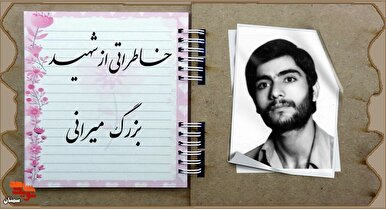 خاطراتی از شهید
بزرگ میرانی
سمنان